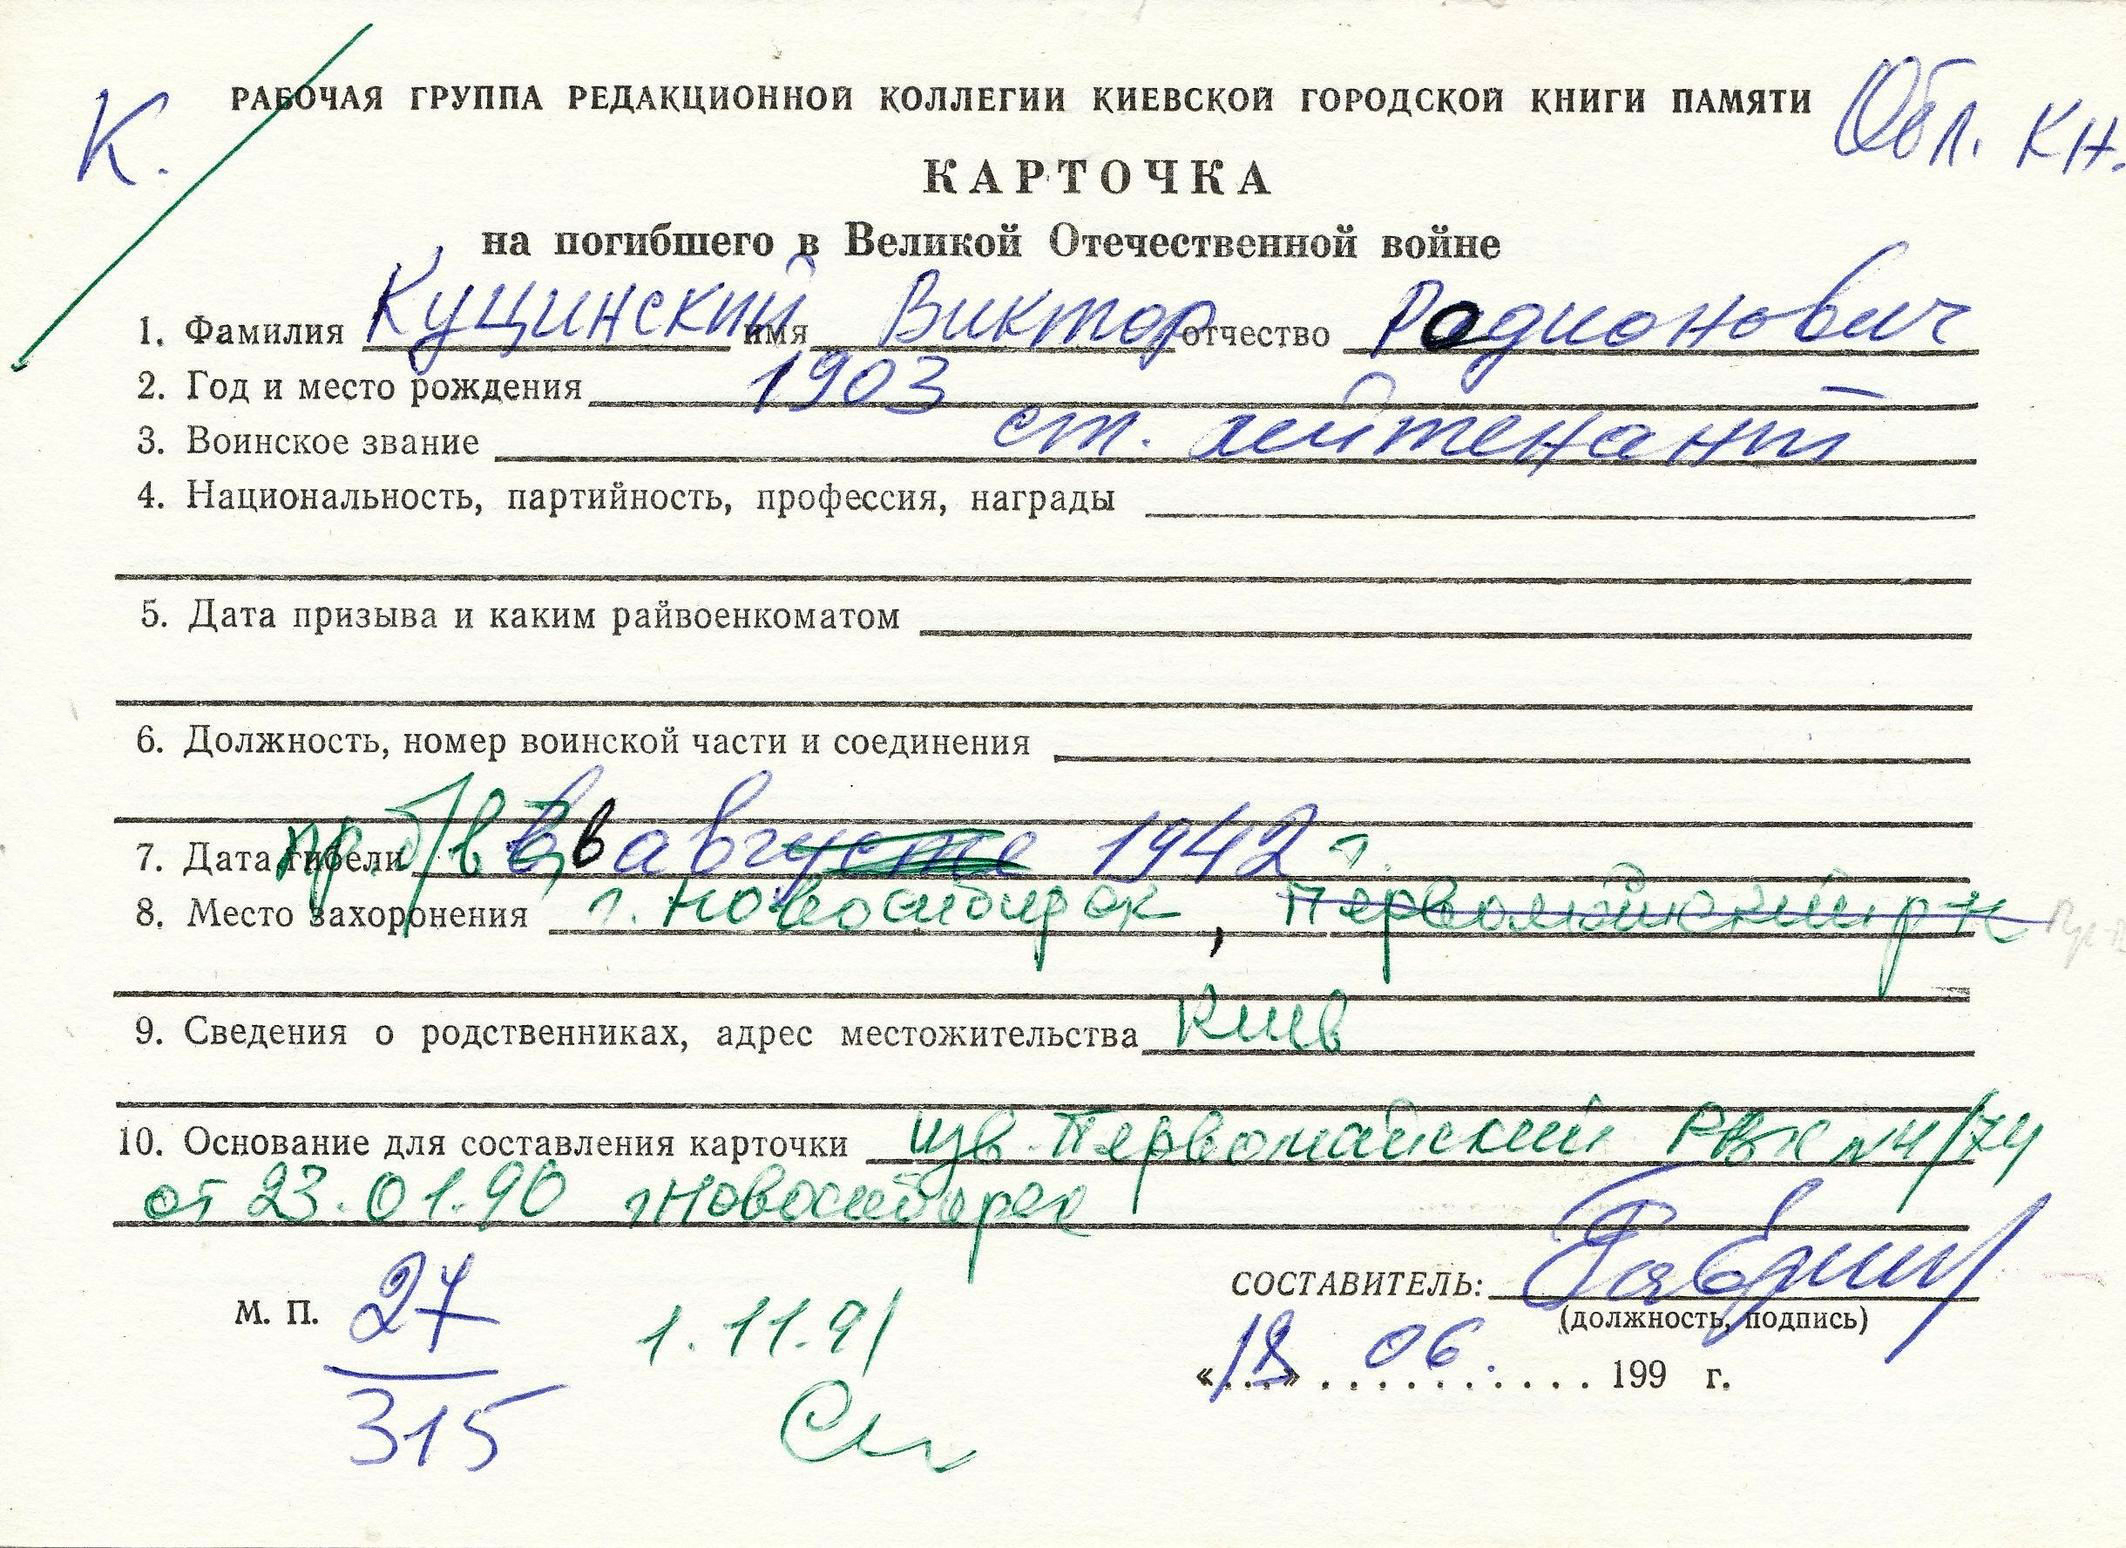 К. РАБОЧАЯ ГРУППА РЕДАКЦИОННОЙ КОЛЛЕГИИ КИЕВСКОЙ ГОРОДСКОЙ КНИГИ ПАМЯТИ Обл. кн.
КАРТОЧКА
на погибшего в Великой Отечественной войне
1. Фамилия Куцинский имя Виктор отчество Родионович
2. Год и место рождения 1903
3. Воинское звание ст. лейтенант
4. Национальность, партийность, профессия, награды
5. Дата призыва и каким райвоенкоматом
6. Должность, номер воинской части и соединения
7. Дата гибели пр. б/в в августе 1942 г.
8. Место захоронения г. Новосибирск, Первомайский р-н
9. Сведения о родственниках, адрес местожительства Киев
10. Основание для составления карточки изв. Первомайский РВК №4/74
от 23.01.90 г Новосибирск
М. П. 27
315
1.11.91
СОСТАВИТЕЛЬ:
(должность, подпись)
«18» 06. 199 г.